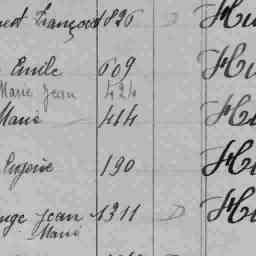 François 1826 D Hu
Emile 609 Hu
Marie Jean 424
Marie 414 Hu
Eugène 190 Hu
Jean 1311 D Hu
Marie